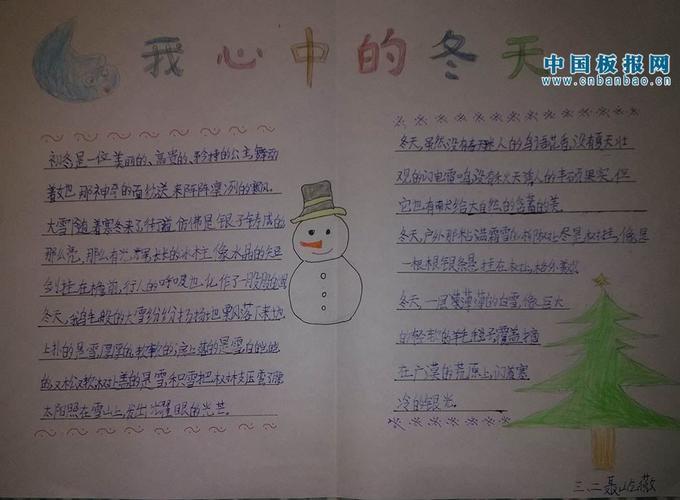 我心中的冬天
中国板报网
www.cnbanbao.cn
初冬是一位美丽的、高贵的、矜持的公主,舞动
着她那神奇的面纱,送来阵阵凛冽的寒风。
大雪随着寒冬来了,街道仿佛是银子铸成的
那么亮,那么有光辉,长长的冰柱像水晶的短
剑挂在檐前,行人的呼吸也化作了一股股
冬天,鹅毛般的大雪纷纷扬扬地飘落下来,地
上扑的是雪,厚厚的,软软的;房上落的是雪,白皑皑
的,又松又软;树上盖的是雪,积雪把树枝压弯了腰
太阳照在雪山上,发出耀眼的光芒。
冬天,虽然没有春天人的鸟语花香,没有夏天壮
观的闪电雷鸣,没有秋天人的丰硕果实,但
它也有献给大自然的含蓄的美。
冬天,户外那粘满霜雪的柳树尽是树挂,像是
一根根银条悬挂在树上,格外美
冬天,一层薄薄的白雪,像巨大
的轻软的羊毛毯子覆盖
在广漠的荒原上,闪着寒
冷的银光。
三、二聂